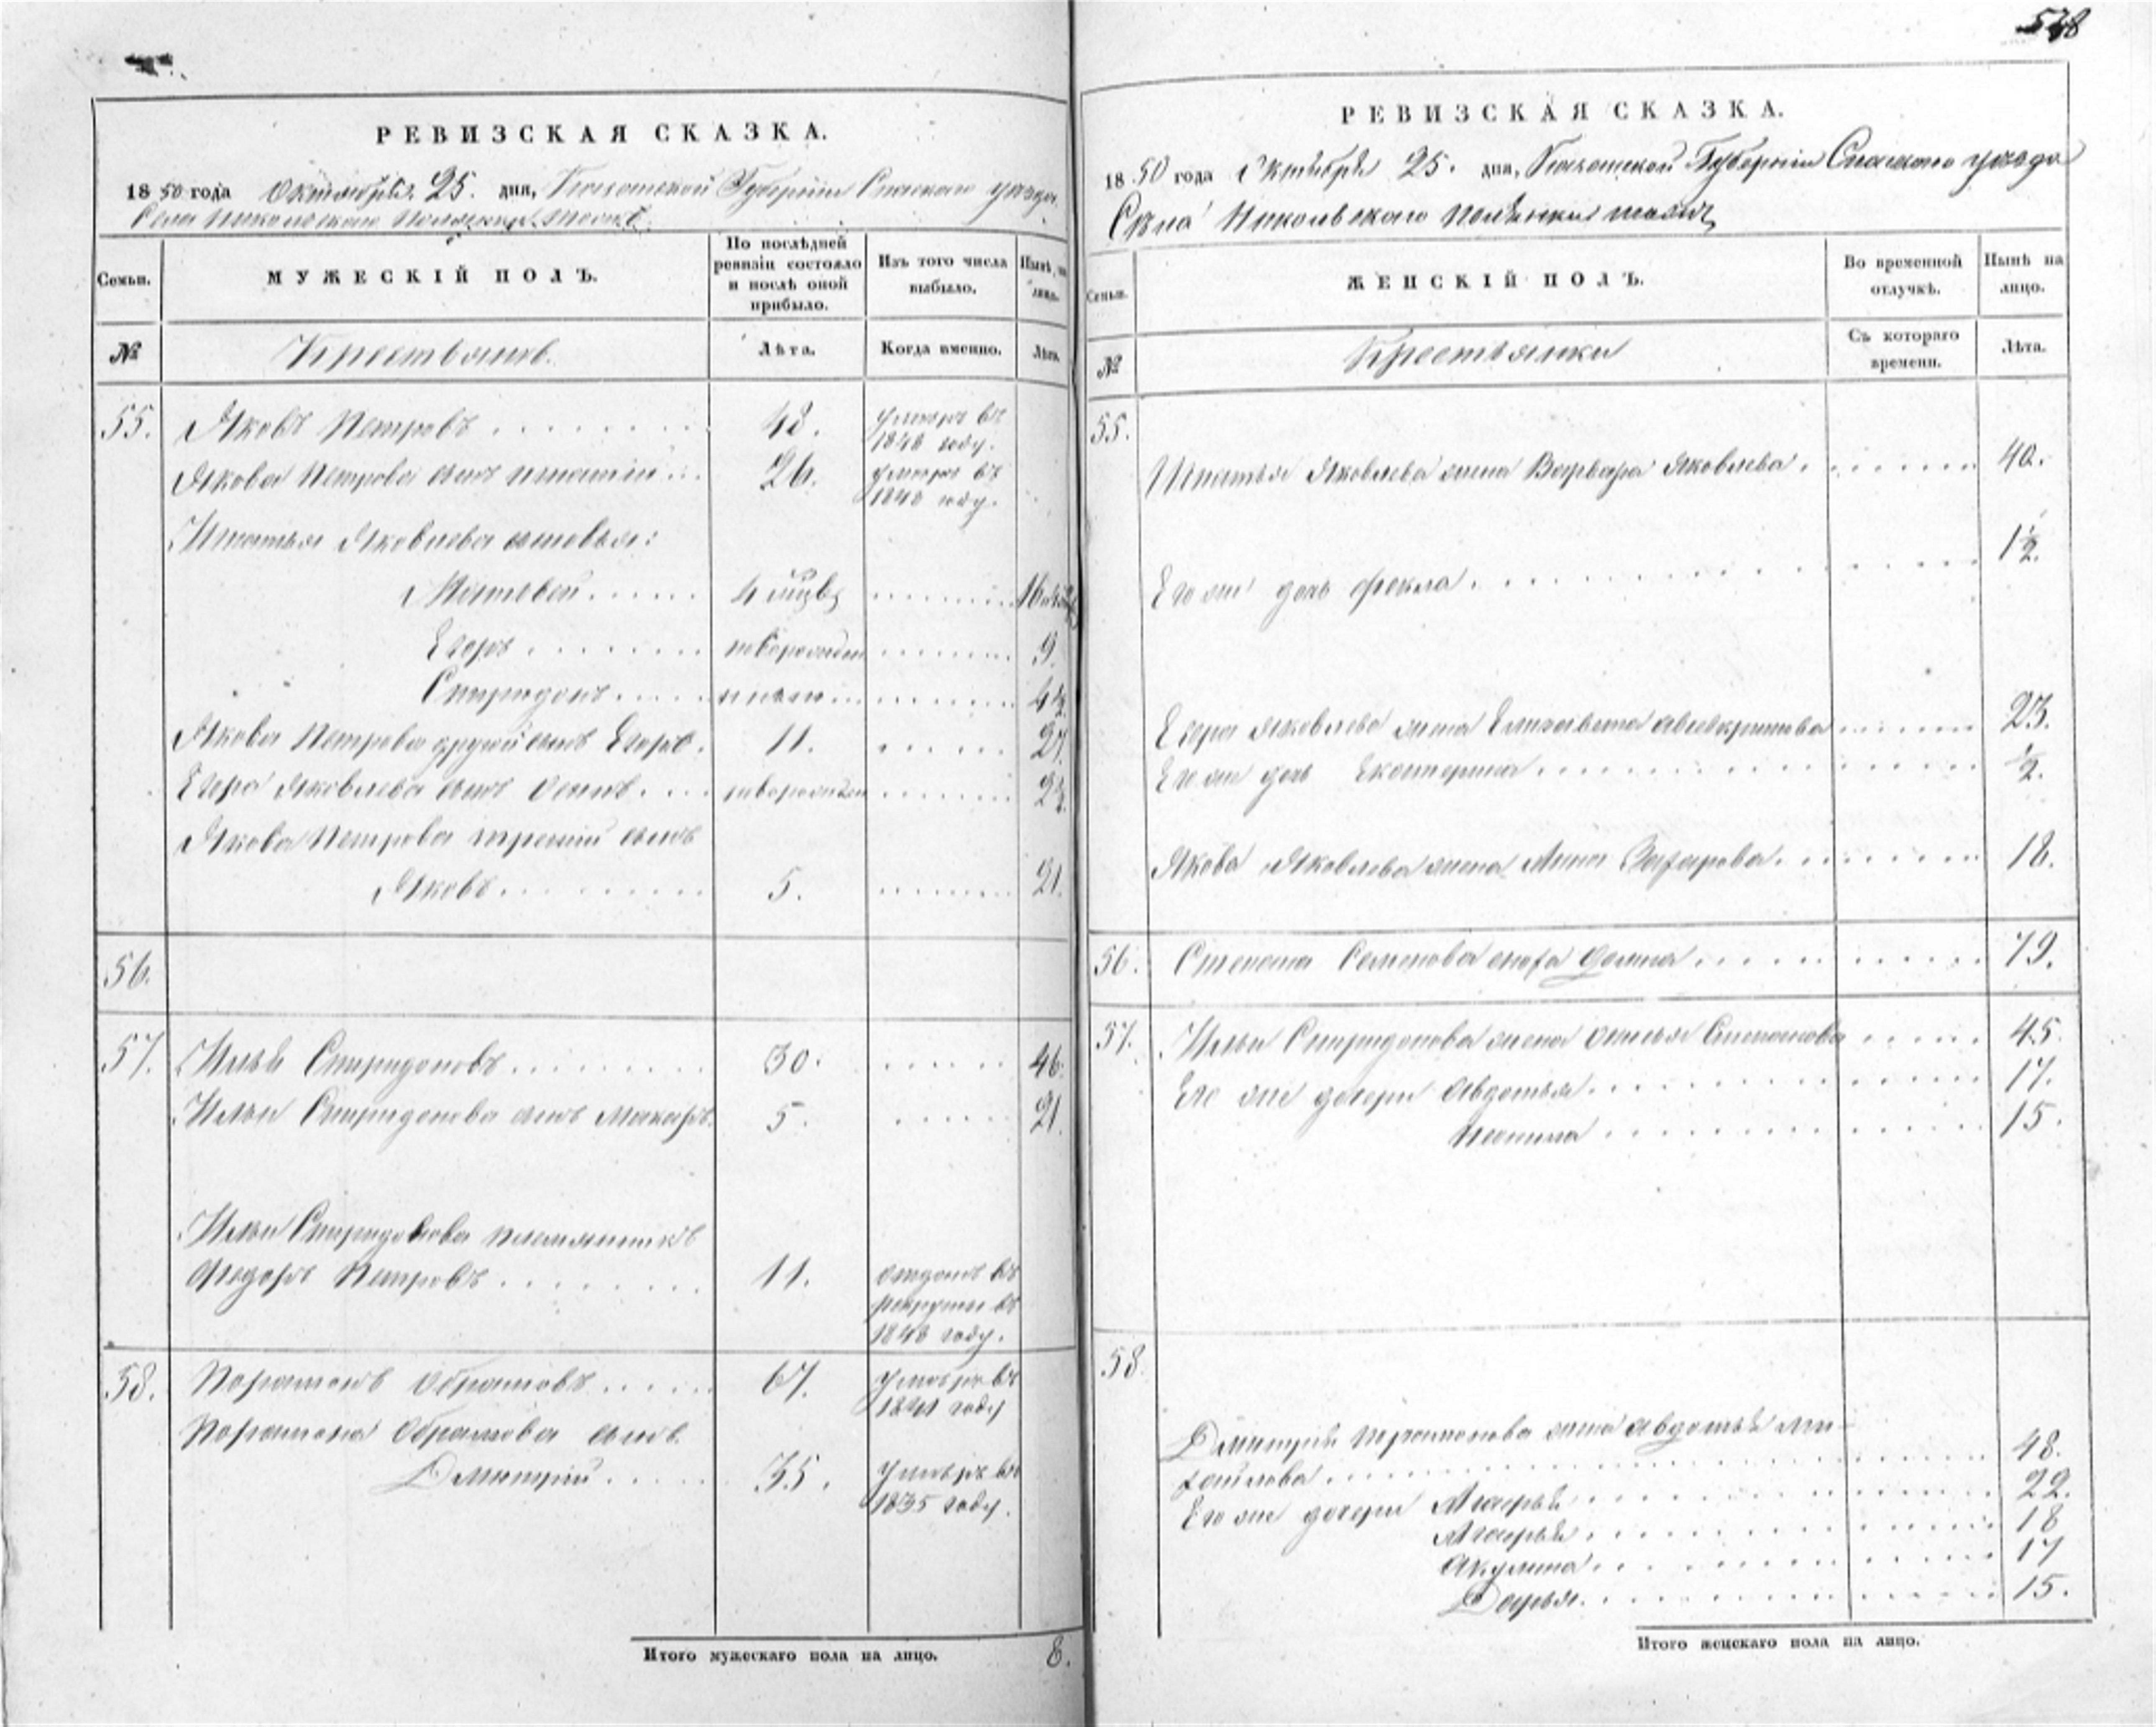 548
РЕВИЗСКАЯ СКАЗКА.
1850 года Октября 25. дня, Губерніи Спаскаго уезда
Села Никольскаго
Семьи.
МУЖЕСКІЙ ПОЛЪ.
По послѣдней ревизіи состояло и послѣ оной прибыло.
Изъ того числа выбыло.
Нынѣ на лицо.
№
Крестьянъ.
Лѣта.
Когда именно.
Лѣта.
55.
Яковъ Петровъ 48. умеръ въ 1848 году.
Якова Петрова сынъ Игнатій 26. умеръ въ 1848 году.
Игнатья Яковлева сыновья:
Матвей 4 16
Егоръ новорожден 9
Спиридонъ 4½
Якова Петрова другой сынъ Егоръ. 11. 27.
Егора Яковлева сынъ Осипъ новорожден 2½
Якова Петрова третій сынъ
Яковъ 5. 21.
56.
57. Илья Спиридоновъ 30. 46.
Ильи Спиридонова сынъ Макаръ. 5. 21.
Ильи Спиридонова племянникъ
Федоръ Петровъ 11. отданъ въ рекруты въ 1848 году.
58. Парамонъ Абрамовъ 67. умеръ въ 1841 году
Парамона Абрамова сынъ
Дмитрій 35. умеръ въ 1835 году.
Итого мужескаго пола на лицо. 8.
РЕВИЗСКАЯ СКАЗКА.
1850 года Октября 25. дня, Губерніи Спаскаго уезда
Села Никольскаго
Семьи.
ЖЕНСКІЙ ПОЛЪ.
Во временной отлучкѣ.
Нынѣ на лицо.
№
Крестьянки
Съ котораго времени.
Лѣта.
55.
Игнатья Яковлева жена Варвара Яковлева. 40.
Его же дочь Фекла. 1½.
Егора Яковлева жена Елизавета 23.
Его же дочь Екатерина ½.
Якова Яковлева жена Анна Захарова. 18.
56. Степана Семенова сноха 79.
57. Ильи Спиридонова жена Степанова 45.
Его же дочери Авдотья. 17.
Неонила 15.
58.
Дмитрія Парамонова жена Авдотья Ми-
хайлова 48.
Его же дочери Марья 22.
Марья 18
Акулина 17
Дарья. 15.
Итого женскаго пола на лицо.